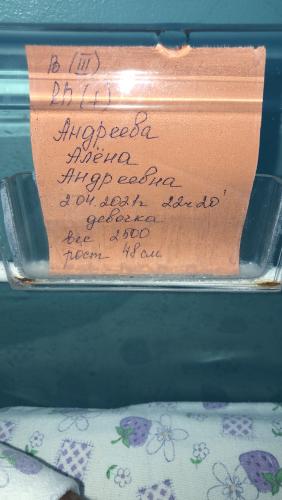 B (III)
Rh (+)
Андреева
Алёна
Андреевна
2 04. 2021г 22ч 20'
девочка
вес 2500
рост 48 см